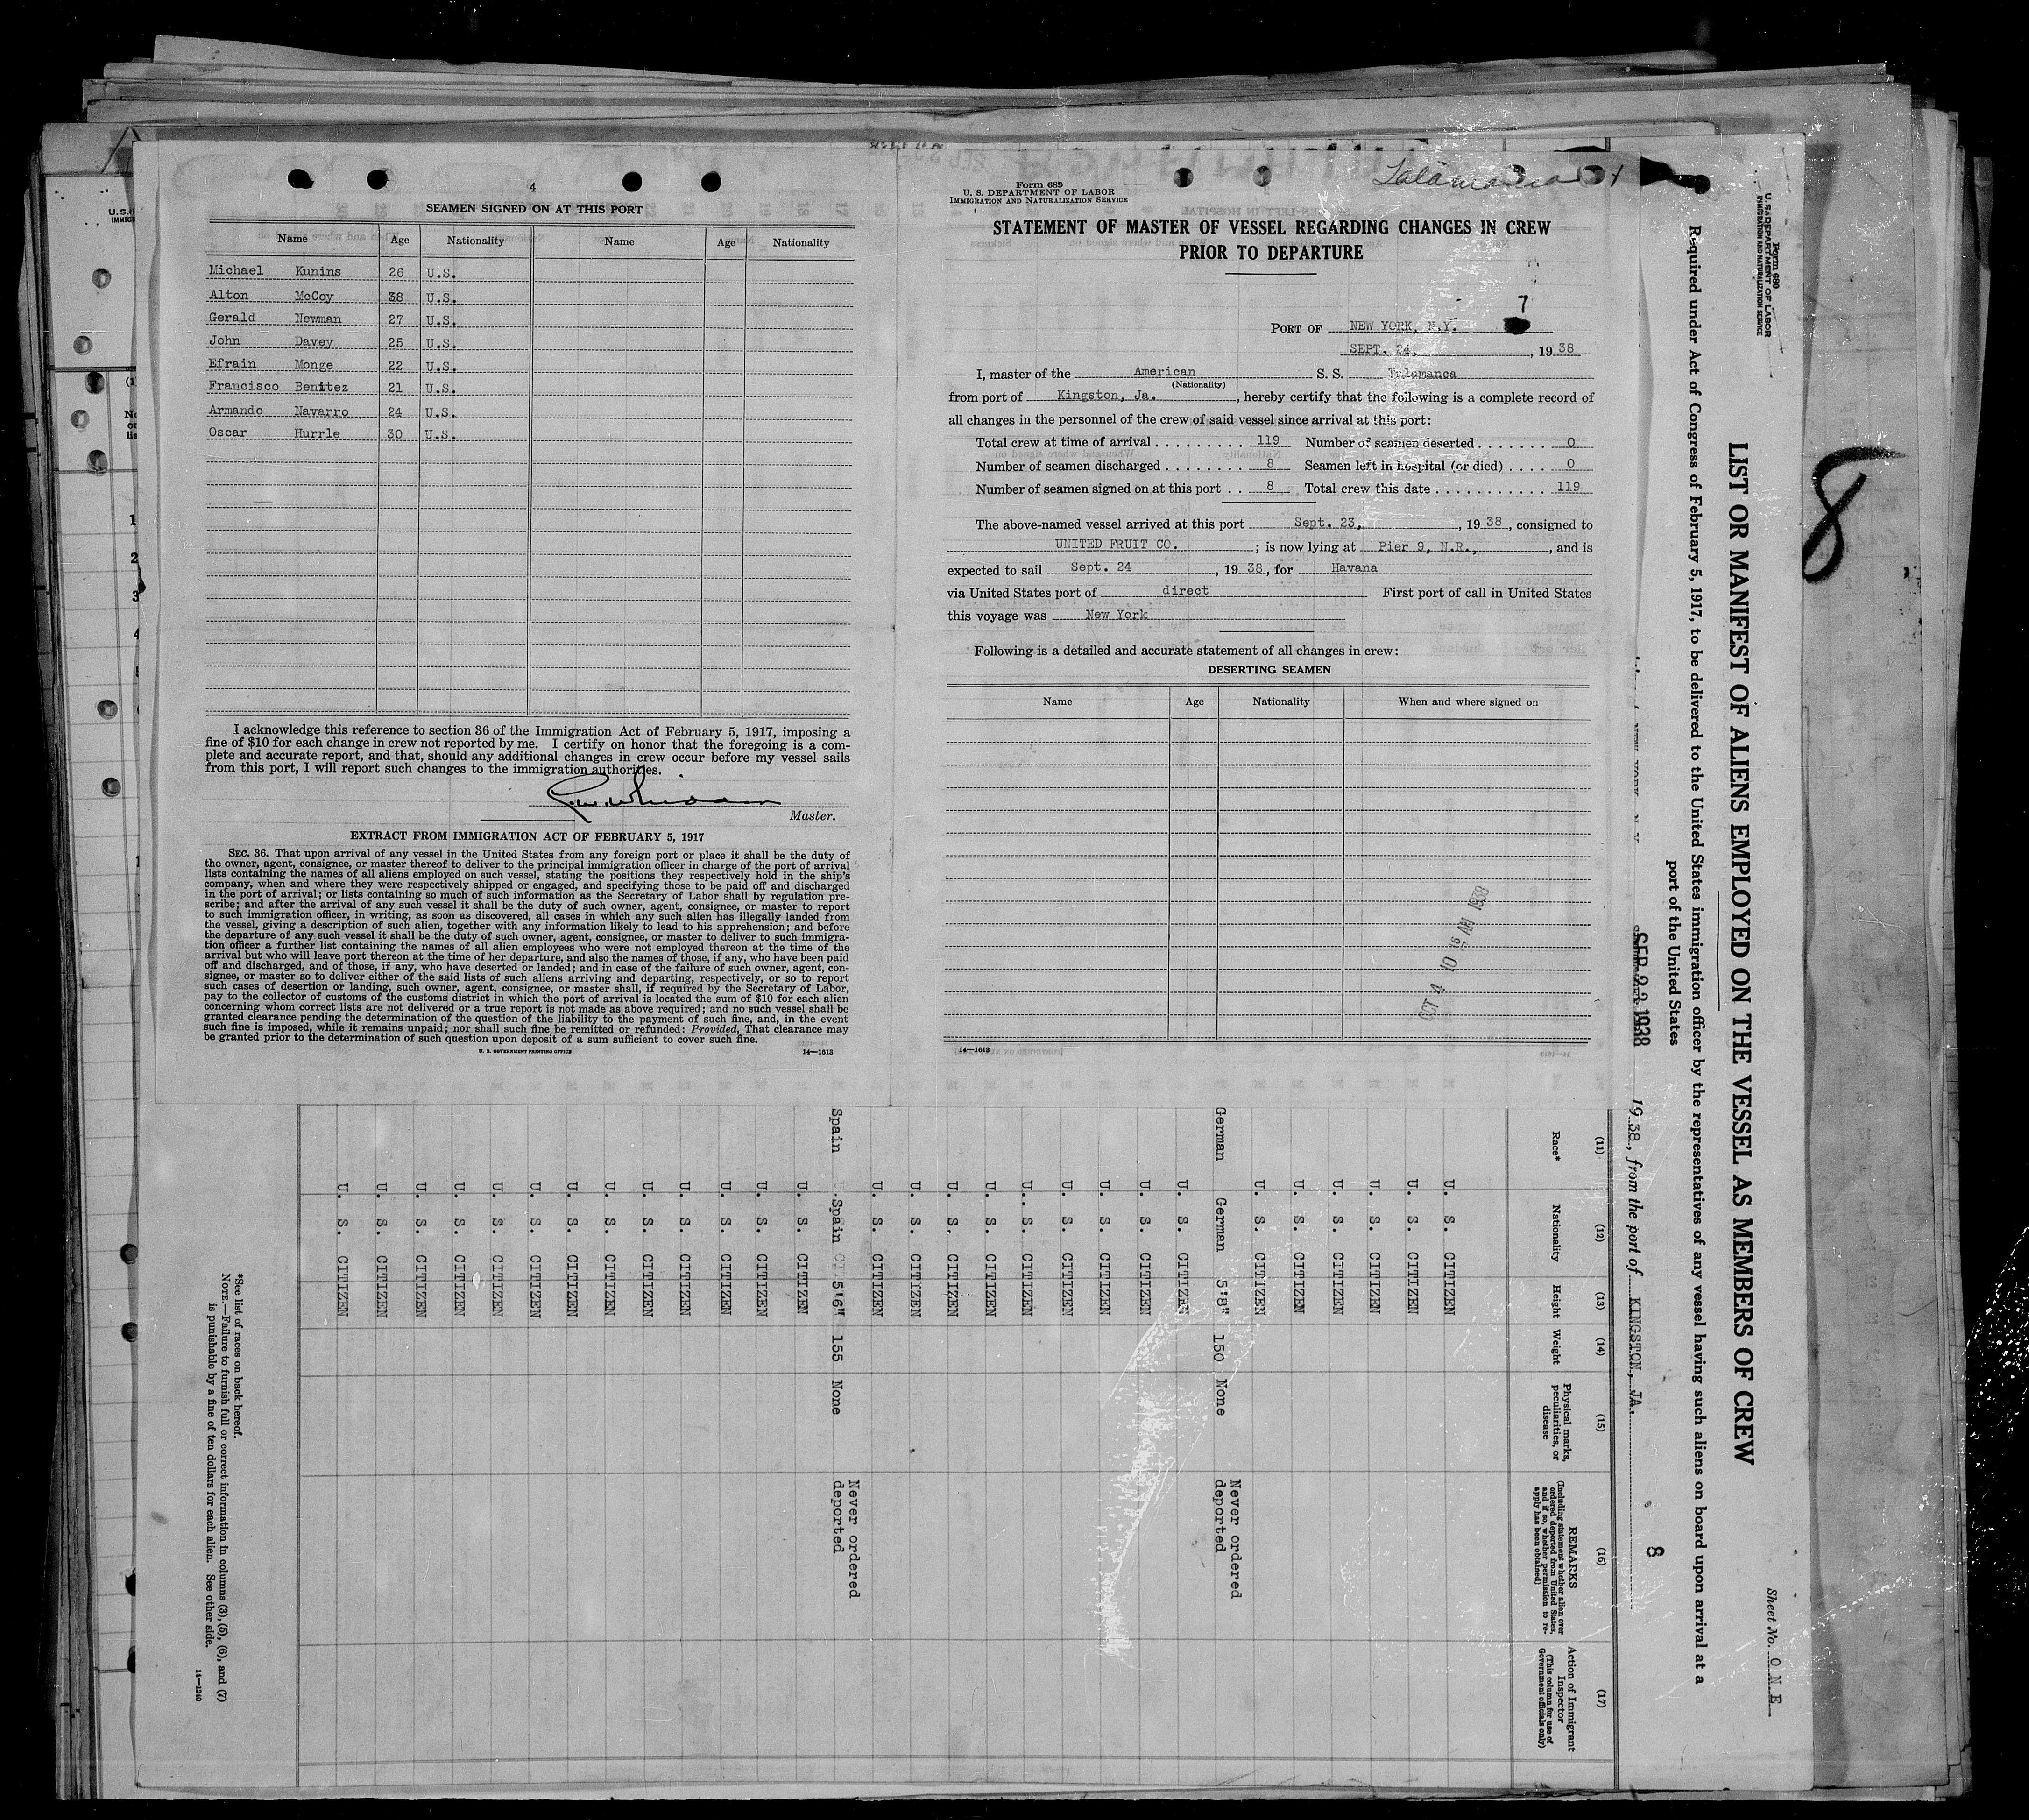 4
SEAMEN SIGNED ON AT THIS PORT
Name Age Nationality Name Age Nationality
Michael Kunins 26 U.S.
Alton McCoy 38 U.S.
Gerald Newman 27 U.S.
John Davey 25 U.S.
Efrain Monge 22 U.S.
Francisco Benitez 21 U.S.
Armando Navarro 24 U.S.
Oscar Hurrle 30 U.S.
I acknowledge this reference to section 36 of the Immigration Act of February 5, 1917, imposing a
fine of $10 for each change in crew not reported by me. I certify on honor that the foregoing is a com-
plete and accurate report, and that, should any additional changes in crew occur before my vessel sails
from this port, I will report such changes to the immigration authorities.
Master.
EXTRACT FROM IMMIGRATION ACT OF FEBRUARY 5, 1917
SEC. 36. That upon arrival of any vessel in the United States from any foreign port or place it shall be the duty of
the owner, agent, consignee, or master thereof to deliver to the principal immigration officer in charge of the port of arrival
lists containing the names of all aliens employed on such vessel, stating the positions they respectively hold in the ship's
company, when and where they were respectively shipped or engaged, and specifying those to be paid off and discharged
in the port of arrival; or lists containing so much of such information as the Secretary of Labor shall by regulation pre-
scribe; and after the arrival of any such vessel it shall be the duty of such owner, agent, consignee, or master to report
to such immigration officer, in writing, as soon as discovered, all cases in which any such alien has illegally landed from
the vessel, giving a description of such alien, together with any information likely to lead to his apprehension; and before
the departure of any such vessel it shall be the duty of such owner, agent, consignee, or master to deliver to such immigra-
tion officer a further list containing the names of all alien employees who were not employed thereon at the time of the
arrival but who will leave port thereon at the time of her departure, and also the names of those, if any, who have been paid
off and discharged, and of those, if any, who have deserted or landed; and in case of the failure of such owner, agent, con-
signee, or master so to deliver either of the said lists of such aliens arriving and departing, respectively, or so to report
such cases of desertion or landing, such owner, agent, consignee, or master shall, if required by the Secretary of Labor,
pay to the collector of customs of the customs district in which the port of arrival is located the sum of $10 for each alien
concerning whom correct lists are not delivered or a true report is not made as above required; and no such vessel shall be
granted clearance pending the determination of the question of the liability to the payment of such fine, and, in the event
such fine is imposed, while it remains unpaid; nor shall such fine be remitted or refunded: Provided, That clearance may
be granted prior to the determination of such question upon deposit of a sum sufficient to cover such fine.
U. S. GOVERNMENT PRINTING OFFICE 14—1613
Form 689
U. S. DEPARTMENT OF LABOR
IMMIGRATION AND NATURALIZATION SERVICE
Talamanca
STATEMENT OF MASTER OF VESSEL REGARDING CHANGES IN CREW
PRIOR TO DEPARTURE
7
PORT OF NEW YORK, N.Y.
SEPT. 24, , 19 38
I, master of the American S. S. Talamanca
(Nationality)
from port of Kingston, Ja. , hereby certify that the following is a complete record of
all changes in the personnel of the crew of said vessel since arrival at this port:
Total crew at time of arrival . . . . . . . . . 119 Number of seamen deserted . . . . . . . 0
Number of seamen discharged . . . . . . . . 8 Seamen left in hospital (or died) . . . . 0
Number of seamen signed on at this port . . 8 Total crew this date . . . . . . . . . . . 119
The above-named vessel arrived at this port Sept. 23, , 19 38 , consigned to
UNITED FRUIT CO. ; is now lying at Pier 9, N.R., , and is
expected to sail Sept. 24 , 19 38, for Havana
via United States port of direct First port of call in United States
this voyage was New York
Following is a detailed and accurate statement of all changes in crew:
DESERTING SEAMEN
Name Age Nationality When and where signed on
OCT 4 10 16 AM 1938
14—1613
Form 689
U. S. DEPARTMENT OF LABOR
IMMIGRATION AND NATURALIZATION SERVICE
Sheet No. O N E
8
LIST OR MANIFEST OF ALIENS EMPLOYED ON THE VESSEL AS MEMBERS OF CREW
Required under Act of Congress of February 5, 1917, to be delivered to the United States immigration officer by the representatives of any vessel having such aliens on board upon arrival at a
port of the United States
1938
19 38, from the port of KINGSTON, JA.
8
(11) (12) (13) (14) (15) (16) (17)
Race* Nationality Height Weight Physical marks, peculiarities, or disease REMARKS (Including statement whether alien ever ordered deported from United States, and if so, whether permission to re-apply has been obtained) Action of Immigrant Inspector (This column for use of Government officials only)
U. S. CITIZEN
U. S. CITIZEN
U. S. CITIZEN
U. S. CITIZEN
U. S. CITIZEN
U. S. CITIZEN
German German 5'8" 150 None Never ordered deported
U. S. CITIZEN
U. S. CITIZEN
U. S. CITIZEN
U. S. CITIZEN
U. S. CITIZEN
U. S. CITIZEN
U. S. CITIZEN
U. S. CITIZEN
U. S. CITIZEN
Spain Spain 5'6" 155 None Never ordered deported
U. S. CITIZEN
U. S. CITIZEN
U. S. CITIZEN
U. S. CITIZEN
U. S. CITIZEN
U. S. CITIZEN
U. S. CITIZEN
U. S. CITIZEN
U. S. CITIZEN
U. S. CITIZEN
U. S. CITIZEN
U. S. CITIZEN
U. S. CITIZEN
*See list of races on back hereof.
NOTE.—Failure to furnish full or correct information in columns (3), (5), (6), and (7)
is punishable by a fine of ten dollars for each alien. See other side.
14—1240